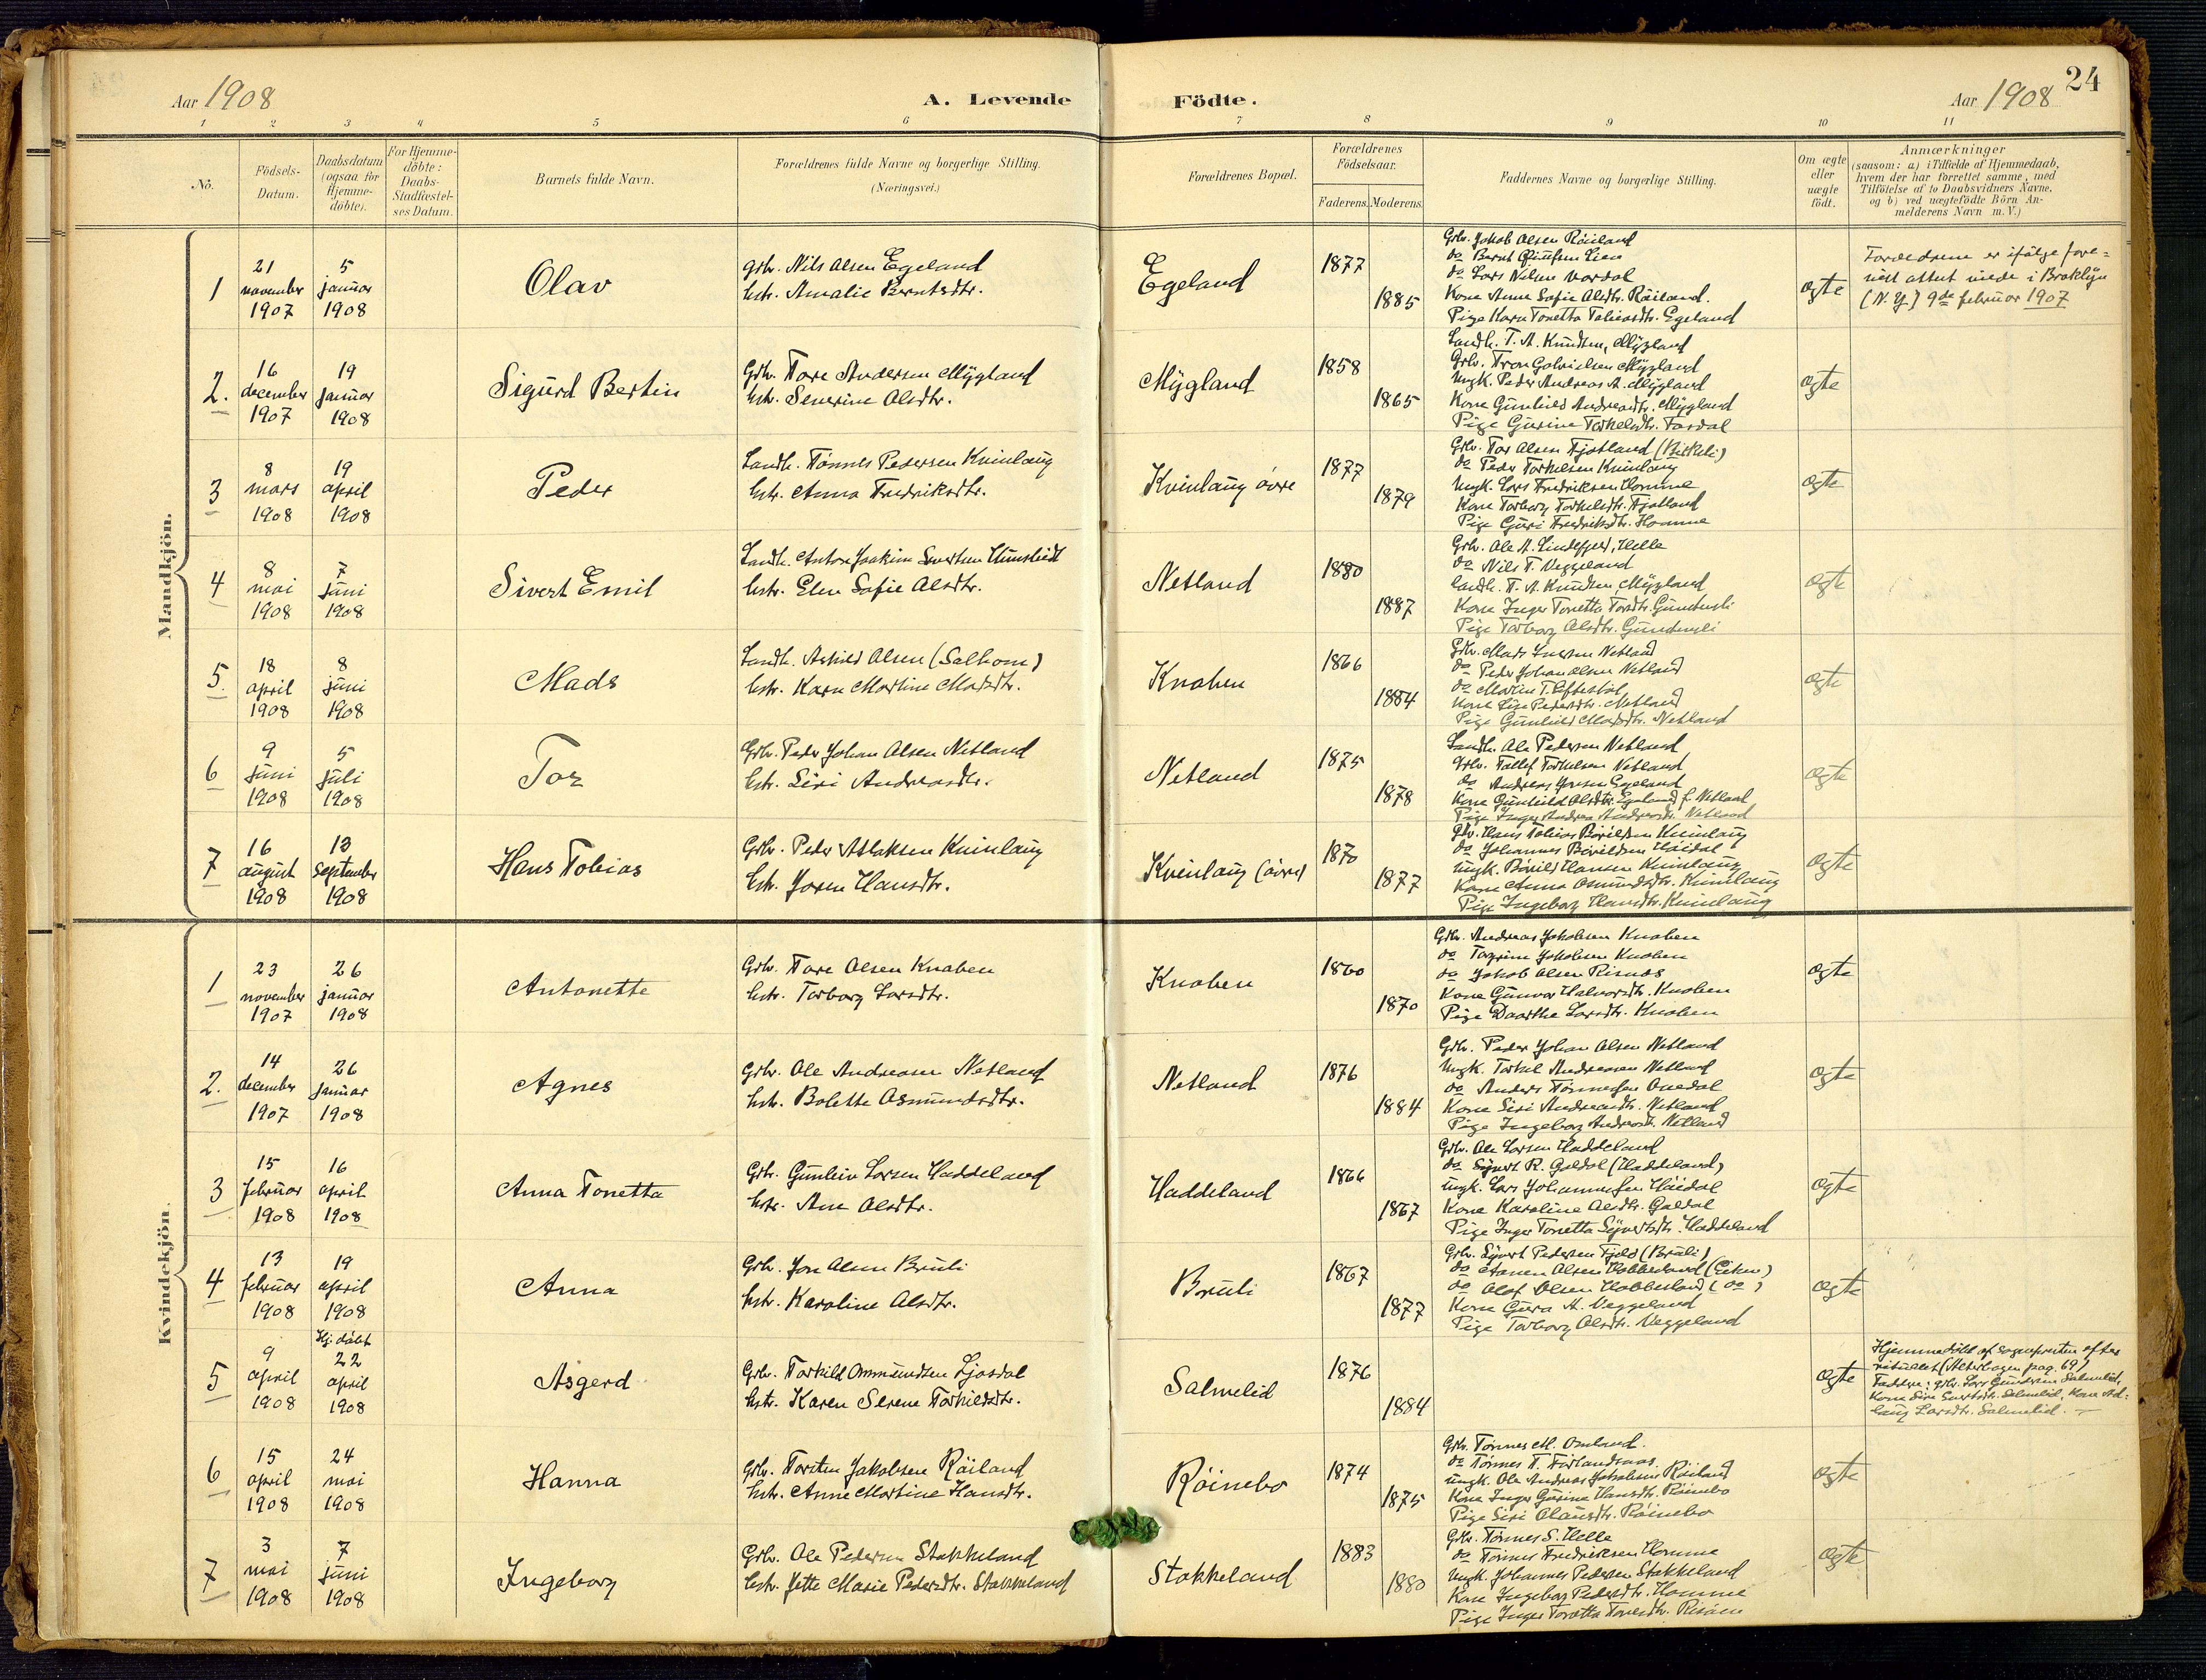 Aar 1908
A. Levende Födte.
Aar 1908 24
1 2 3 4 5 6 7 8 9 10 11
No.
Födsels-Datum.
Daabsdatum (ogsaa for Hjemme-döbte).
For Hjemme-döbte: Daabs-Stadfæstel-ses Datum.
Barnets fulde Navn.
Forældrenes fulde Navne og borgerlige Stilling.
(Næringsvei.)
Forældrenes Bopæl.
Forældrenes Födselsaar.
Faderens. Moderens.
Faddernes Navne og borgerlige Stilling.
Om ægte eller uægte födt.
Anmærkninger
(saasom: a) i Tilfælde af Hjemmedaab,
hvem der har forrettet samme, med
Tilföielse af to Daabsvidners Navne,
og b) ved uægtefödte Börn An-
melderens Navn m. V.)
Mandkjön.
1
21 november 1907
5 januar 1908
Olav
Grbr. Nils Olsen Egeland
Hstr. Amalie Berntsdtr.
Egeland
1877
1885
Grbr. Jakob Olsen Röiland
do Lars Nilsen
Kone Anne Sofie Olsdtr. Röiland.
Pige Karn Tonetta Tobiasdtr. Egeland
ægte
Forældrene er ifølge fore-
vist attest viede i Broklyn
(N.Y.) 9de februar 1907
2.
16 december 1907
19 januar 1908
Sigurd Bertin
Grbr. Tore Andersen Mygland
Hstr. Severine Olsdtr.
Mygland
1858
1865
Landh. T. A. Knudsen, Mygland
Grbr. Tron Gabrielsen Mygland
Ungk. Peder Andreas A. Mygland
Kone Gunhild Andreasdtr. Mygland
Pige Gurine Torkelsdtr.
ægte
3
8 mars 1908
19 april 1908
Peder
Landh. Tönnes Pedersen Kvinlaug
Hstr. Anna Fredriksdtr.
Kvinlaug övre
1877
1879
Grbr. Tor Olsen Fjotland (Birkeli)
do Peder Torkelsen Kvinlaug
Ungk. Lars Fredriksen Homme
Kone Torborg Torkelsdtr. Fjotland
Pige Guri Fredriksdtr. Homme
ægte
4
8 mai 1908
7 juni 1908
Sivert Emil
Landh. Anton Joakim Sivertsen
Hstr. Elen Sofie Olsdtr.
Netland
1880
1887
Grbr. Ole A. Lindefjeld, Helle
do Nils T. Veggeland
Landh. T. A. Knudsen, Mygland
Kone Inger Tonetta Torsdtr.
Pige Torborg Olsdtr.
ægte
5.
18 april 1908
8 juni 1908
Mads
Landh. Askild Olsen (Salhom)
Hstr. Karn Martine Madsdtr.
Knaben
1866
1884
Grbr. Mads Netland
do Peder Johan Olsen Netland
do Martin T. Eftestöl
Kone Lise Pedersdtr. Netland
Pige Gunhild Madsdtr. Netland
ægte
6
9 juni 1908
5 juli 1908
Tor
Grbr. Peder Johan Olsen Netland
Hstr. Siri Andreasdtr.
Netland
1875
1878
Landh. Ole Pedersen Netland
Grbr. Tallef Torkelsen Netland
do Andreas Egeland
Kone Gunhild Olsdtr. Egeland f. Netland
Pige Inger Andrea Andreasdtr. Netland
ægte
7
16 august 1908
13 september 1908
Hans Tobias
Grbr. Peder Atlaksen Kvinlaug
Hstr. Joren Hansdtr.
Kvinlaug (övre)
1870
1877
Grbr. Hans Tobias Börildsen Kvinlaug
do Johannes Börildsen Höidal
Ungk. Böril Hansen Kvinlaug
Kone Anna Osmundsdtr. Kvinlaug
Pige Ingeborg Hansdtr. Kvinlaug
ægte
Kvindekjön.
1
23 november 1907
26 januar 1908
Antonette
Grbr. Tore Olsen Knaben
Hstr. Torborg Larsdtr.
Knaben
1860
1870
Grbr. Andreas Jakobsen Knaben
do Torgrim Jakobsen Knaben
do Jakob Olsen Risnæs
Kone Gunvor Halvorsdtr. Knaben
Pige Daarthe Larsdtr. Knaben
ægte
2.
14 december 1907
26 januar 1908
Agnes
Grbr. Ole Andreasen Netland
Hstr. Bolette Osmundsdtr.
Netland
1876
1884
Grbr. Peder Johan Olsen Netland
Ungk. Torkel Andreasen Netland
do Anders Tönnessen
Kone Siri Andreasdtr. Netland
Pige Ingeborg Andreasdtr. Netland
ægte
3
15 februar 1908
16 april 1908
Anna Tonetta
Grbr. Gunlein Larsen Haddeland
Hstr. Ane Olsdtr.
Haddeland
1866
1867
Grbr. Ole Larsen Haddeland
do Syvert R. Galdal (Haddeland)
Ungk. Lars Johannessen Höidal
Kone Karoline Olsdtr. Galdal
Pige Inger Tonetta Syvertsdtr. Haddeland
ægte
4
13 februar 1908
19 april 1908
Anna
Grbr. Jon Olsen Bruli
Hstr. Karoline Olsdtr.
Bruli
1867
1877
Grbr. Syvert Pedersen Fjeld (Bruli)
do Aanen Olsen Hobbesland (Eiken)
do Olaf Olsen Hobbesland (do)
Kone Gura A. Veggeland
Pige Torborg Olsdtr. Veggeland
ægte
5
9 april 1908
Hj. döbt 22 april 1908
Asgerd
Grbr. Torkild Ommundsen Ljosdal
Hstr. Karen Serene Torkildsdtr.
Salmelid
1876
1884
ægte
Hjemmedöbt af sognepresten efter
ritualet (Alterbogen pag. 69)
Faddere: grbr. Lars Gundersen Salmelid,
Kone Siri Sivertsdtr. Salmelid, Kone Ad-
laug Larsdtr. Salmelid.
6
15 april 1908
24 mai 1908
Hanna
Grbr. Torsten Jakobsen Röiland
Hstr. Anne Martine Hansdtr.
Röinebo
1874
1875
Grbr. Tönnes M. Omland.
do Tönnes T.
Ungk. Ole Andreas Jakobsen Röiland
Kone Inger Gurine Hansdtr. Röinebo
Pige Siri Olausdtr. Röinebo
ægte
7
3 mai 1908
7 juni 1908
Ingeborg
Grbr. Ole Pedersen Stakkeland
Hstr. Jette Marie Pedersdtr. Stakkeland
Stakkeland
1883
1880
Grbr. Tönnes S. Helle
do Tönnes Fredriksen Homme
Ungk. Johannes Pedersen Stakkeland
Kone Ingeborg Pedersdtr. Homme
Pige Inger Toretta Toresdtr. Risöen
ægte